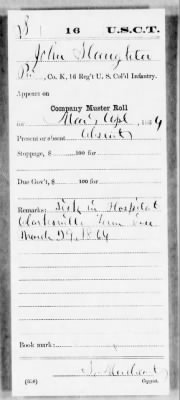 S | 16 | U.S.C.T.
John Slaughter
Pvt., Co. K, 16 Reg't U. S. Col'd Infantry.
Appears on
Company Muster Roll
for Mar & Apl, 1864
Present or absent Absent
Stoppage, $ 100 for
Due Gov't, $ 100 for
Remarks: Sick in Hospital
Clarksville Tenn since
March 29, 1864
Book mark:
(358) Copyist.